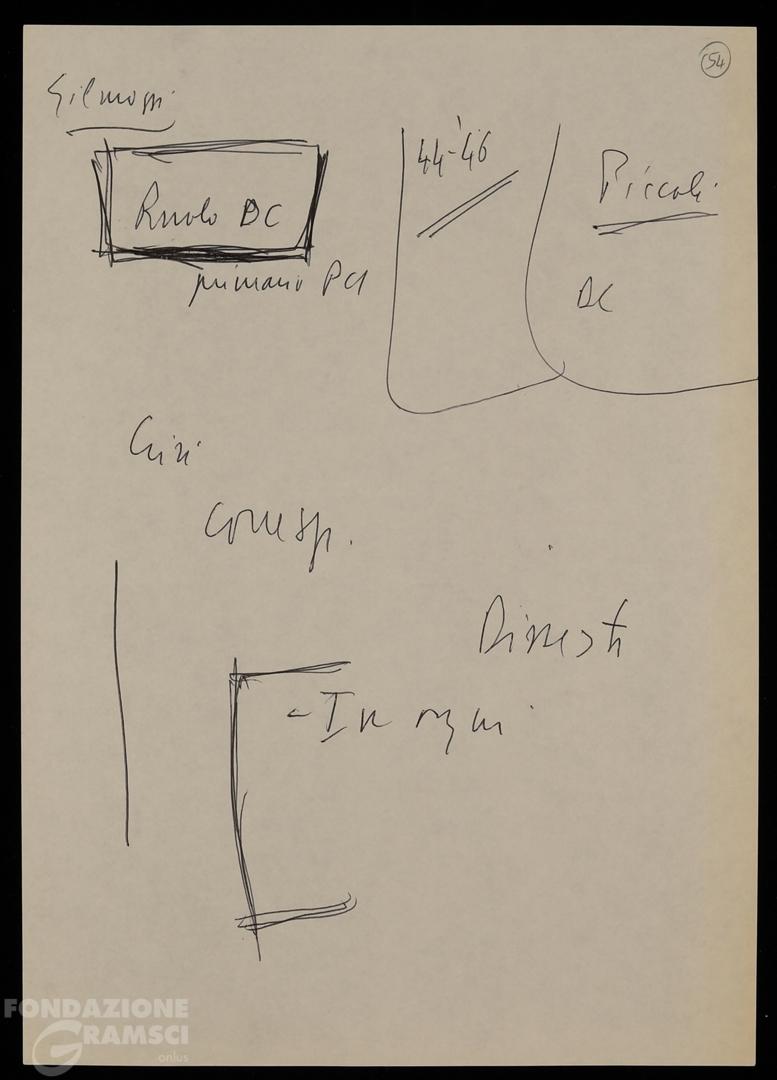 54
Ruolo DC
primario PCI
44-46
Piccoli
DC
Crisi
corresp.
Dissesti
- In ogni
FONDAZIONE
GRAMSCI
onlus